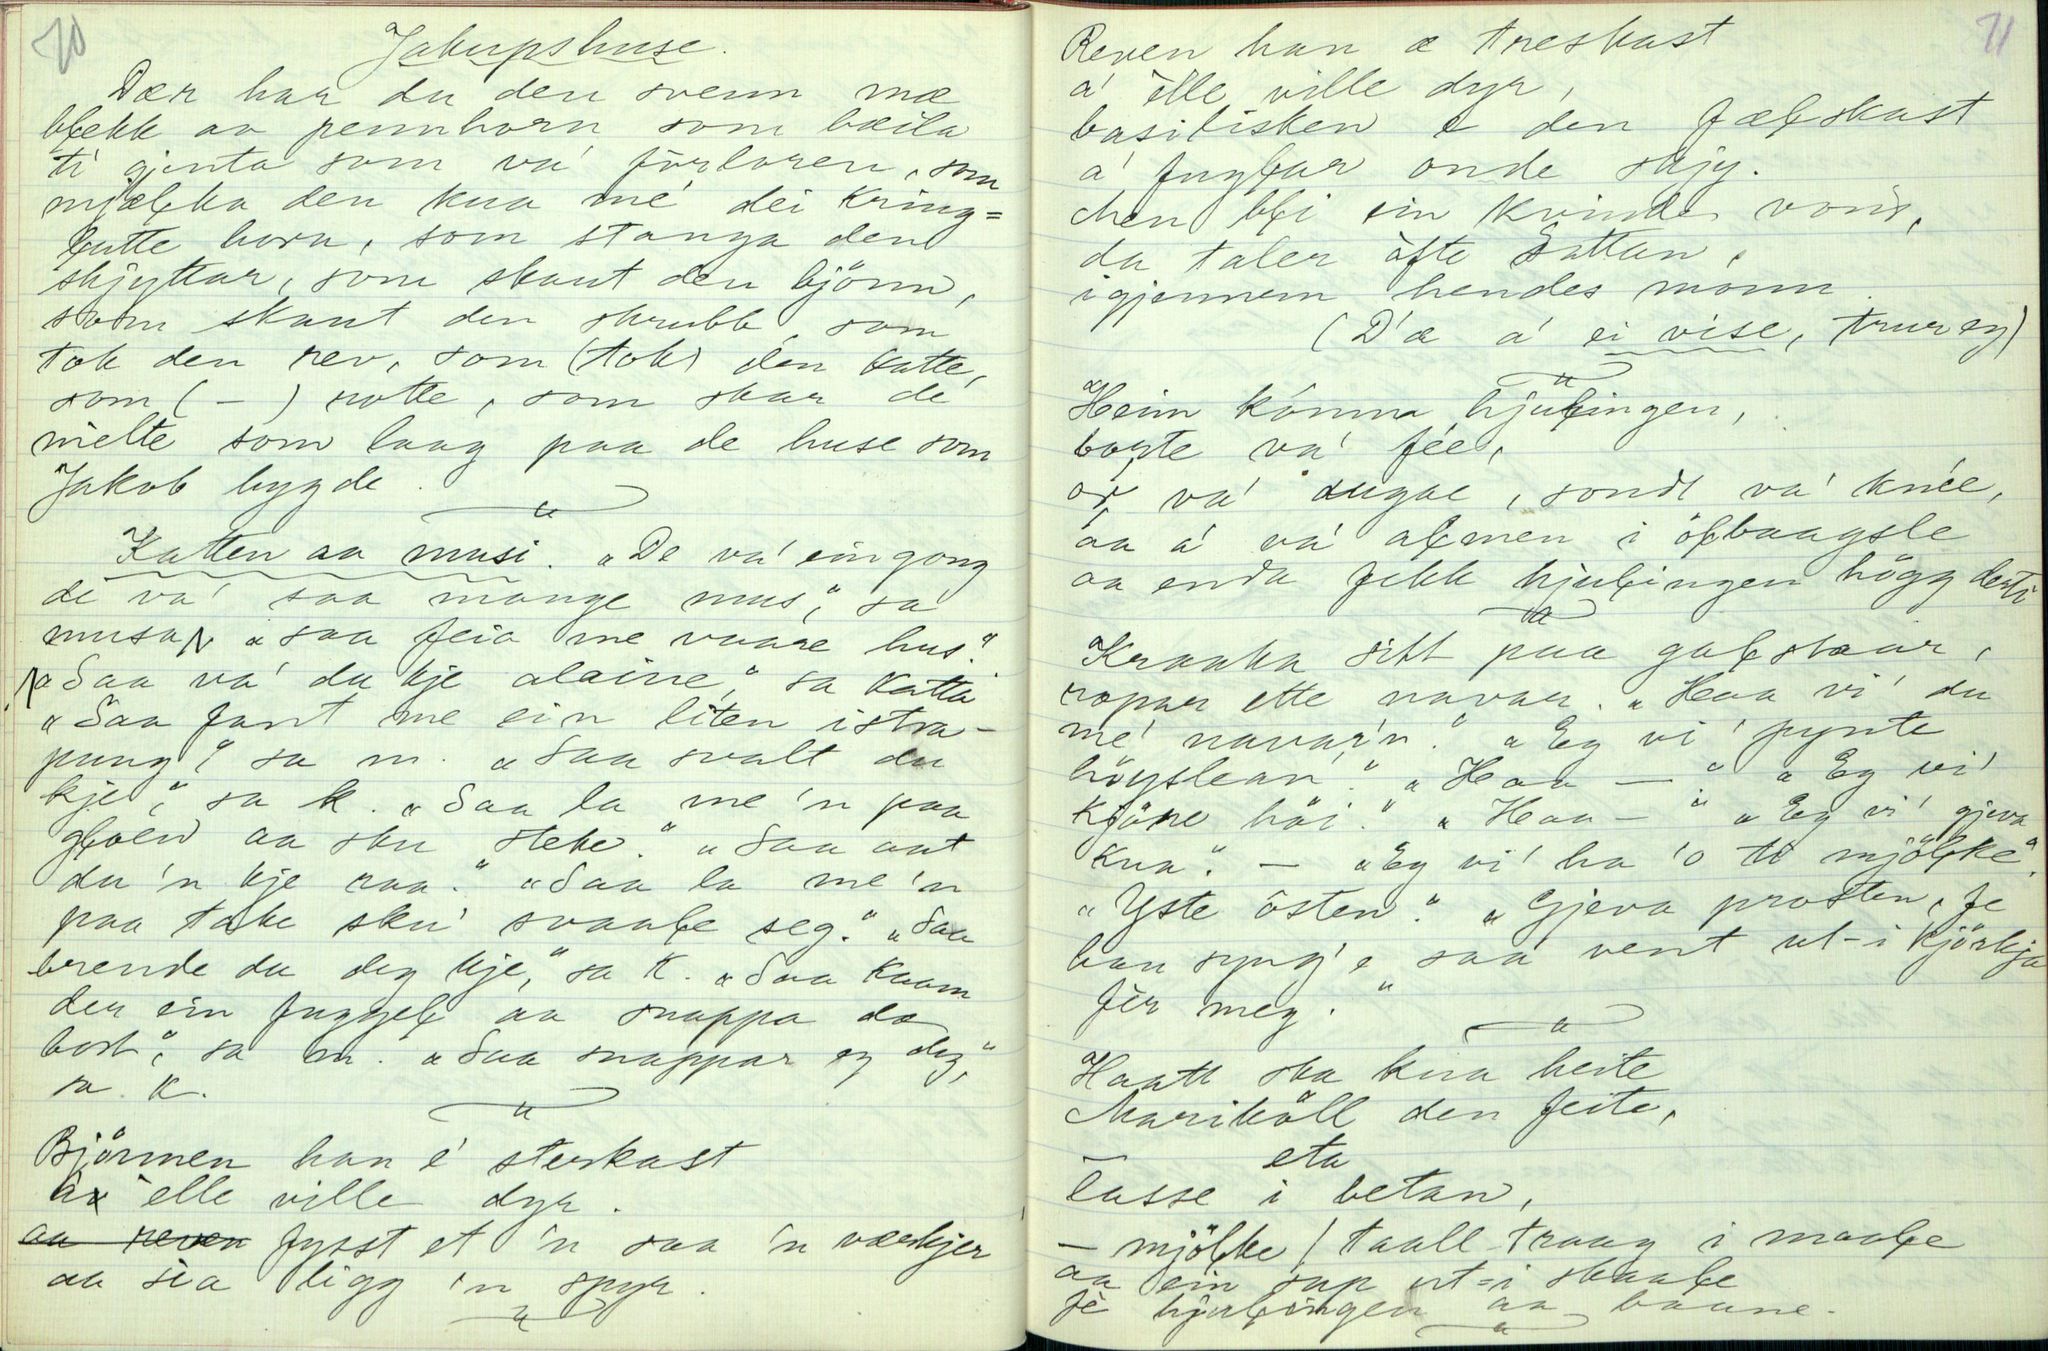 70
Jakupshuse.
Dær har du den svenn mæ
blekk aa pennhorn som bæila
ti gjenta som va' førloren, som
mjælka den kua me' dei kring=
lutte horn, som stanga den
skjyttar, som skaut den bjönn,
som skaut den skrubb, som
tok den rev, som (tok) den katte,
som ( - ) rotte, som skar de
melte som laag paa de huse som
Jakob bygde.
Katten aa musi. "De va' ein gong
de va' saa mange mus", sa
musa, "saa feia me vaare hus."
"Saa va' du kje alaine", sa katta
"Saa fant me ein liten istra-
pung", sa m. "Saa svalt du
kje", sa k. "Saa la me 'n paa
gloen aa sku steke." "Saa aat
du 'n kje raa." "Saa la me 'n
paa take sku' svaale seg." "Saa
brende du deg kje," sa K. "Saa kaam
der ein fuggel aa snappa da
bort", sa m. "Saa snappar eg deg",
sa K.
Bjönnen han é sterkast
àv elle ville dyr.
aa reven fysst et 'n saa 'n værkjer
aa sia ligg 'n spyr.
71
Reven han æ treskast
á elle ville dyr,
basilisken e den fælskast
á fuglar onde skjy.
Men bli ein kvinde vond,
da taler ofte Sattan,
igjennem hendes monn.
(D'æ á ei vise, trur eg)
Heim kómm hjulingen,
borte va' fée,
or va' augae, sondt va' knée,
aa á va' almen i ölbaagsle
aa enda fekk hjulingen högg derti
Kraaka sitt paa galstaar,
ropar ette navar. "Haa vi' du
me' navar'n." "Eg vi' pynte
höyslean." "Haa —" "Eg vi'
kjöre höi." "Haa —" "Eg vi' gjeva
kua." — "Eg vi' ha 'o ti mjölke".
"Yste osten." "Gjeva prosten, fe
han syng'e saa vent ut-i kjörkja
fèr meg."
Haatt ska kua heite
Mariköll den feite,
eta
lasse i betan,
— mjölke / taall-traag i maale
aa ein sup ut-i skaale
fe hjulingen aa baane.